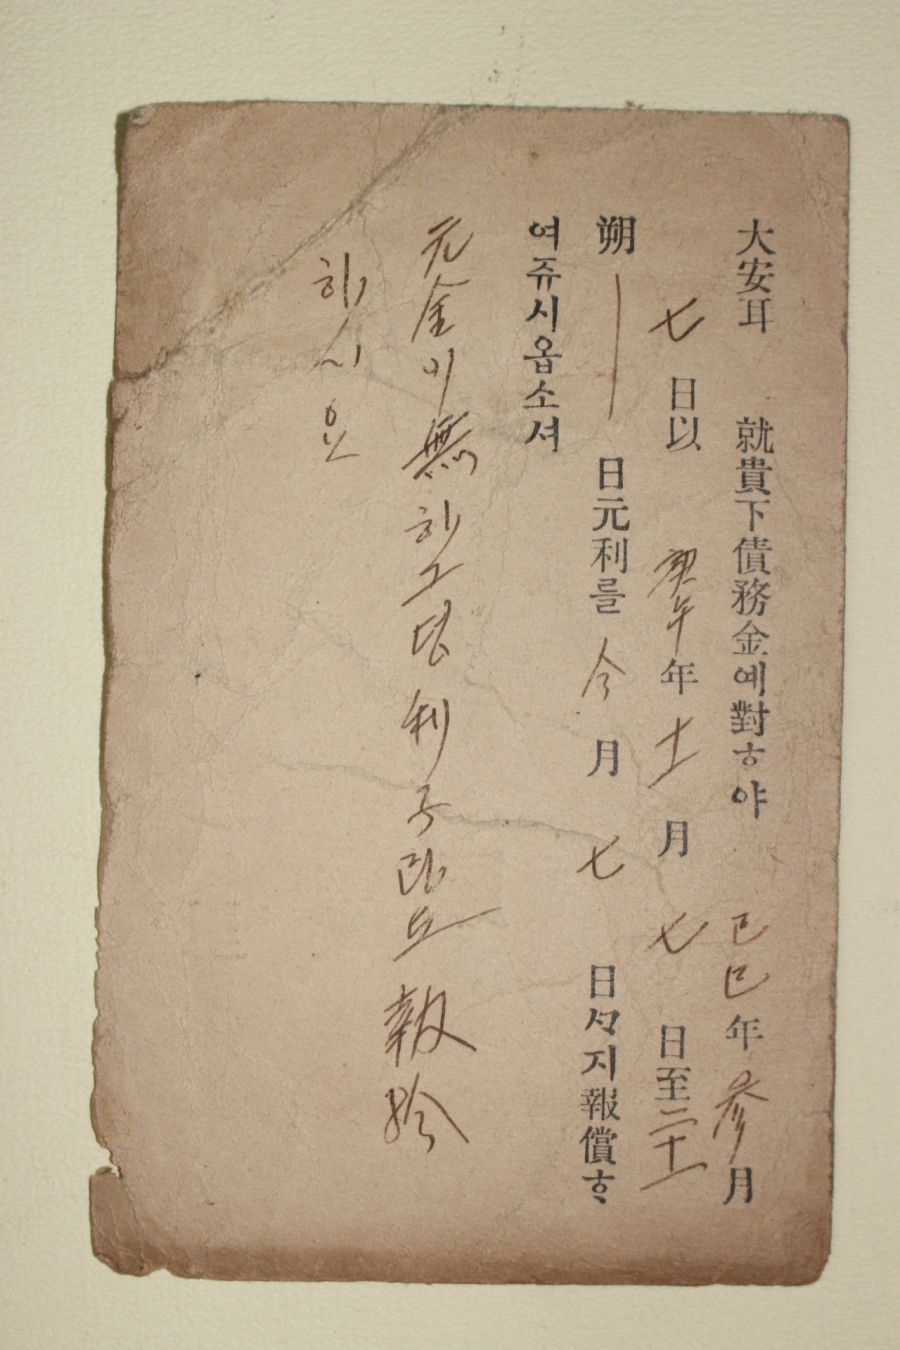 大安耳 就貴下債務金예對ᄒᆞ야 己巳年参月
七日以 庚午年十一月七日至二十一
朔 — 日元利를 今月七日ᄭᆞ지報償ᄒᆞ
여쥬시옵소셔
元金이無하그던利子라도報給
하시요